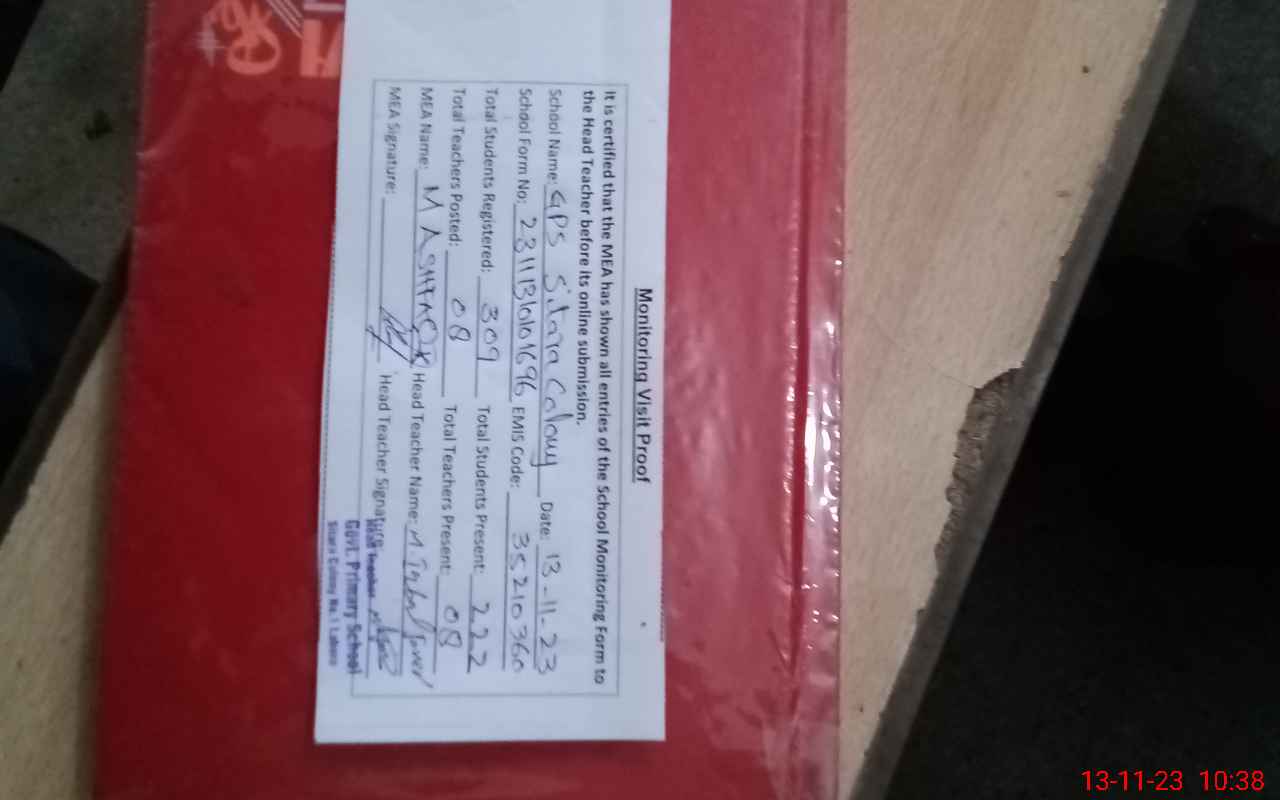 Monitoring Visit Proof
It is certified that the MEA has shown all entries of the School Monitoring Form to
the Head Teacher before its online submission.
School Name: GPS Sitara Colony Date: 13-11-23
School Form No: 23111310101696 EMIS Code: 35210360
Total Students Registered: 309 Total Students Present: 222
Total Teachers Posted: 08 Total Teachers Present: 08
MEA Name: M ASHFAQ Head Teacher Name: M. Iqbal
MEA Signature: Head Teacher Signature
Head Teacher
Govt. Primary School
Sitara Colony No.1 Lahore
13-11-23 10:38